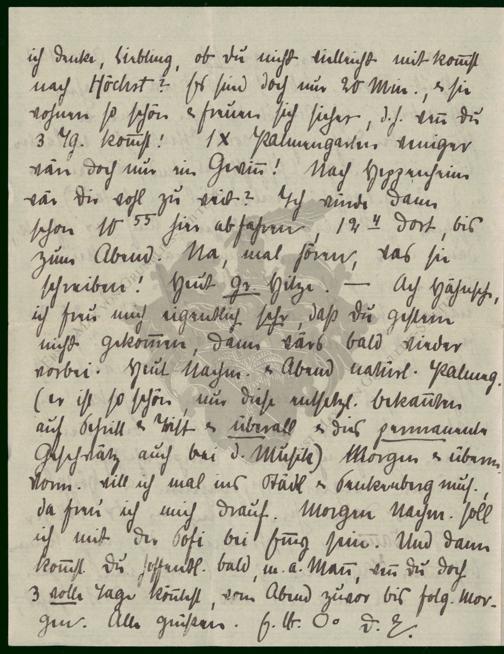 ich denke, Liebling, ob du nicht vielleicht mit kommst
nach Höchst? Es sind doch nur 20 Min., & sie
wohnen so schön & freuen sich sicher, d.h. wenn du
3 Tg. kommst! 1 x Palmengarten weniger
wär doch nur ein Gewinn! Nach Heppenheim
wär dir wohl zu weit? Ich würde dann
schon 10 55 hier abfahren, 12 4 dort, bis
zum Abend. Na, mal hören, was sie
schreiben! Heut Gr. Hitze. — Ach
ich freu mich eigentlich sehr, daß du gestern
nicht gekommen, dann wärs bald wieder
vorbei. Heut Nachm. & Abend natürl. Palmeng.
(er ist so schön, nur diese entsetzl. Bekannten
auf Schritt & Tritt & überall & dies permanente
Geschwätz auch bei d. Musik) Morgen & überm.
Vorm. will ich mal ins Städl & Senkenberg mus.,
da freu ich mich drauf. Morgen Nachm. soll
ich mit der bei sein. Und dann
kommst du hoffentl. bald, m. a. Mann, wenn du doch
3 volle Tage könntest, vom Abend zuvor bis folg. Mor-
gen. Alle grüßen.